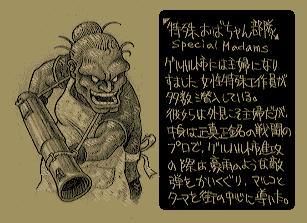 "特殊おばちゃん部隊"
Special Madams
ゲルハルト市には主婦になり
すました女性特殊工作員が
多数潜入している。
彼女らは外見こそ主婦だが、
中身は正真正銘の戦闘の
プロで、ゲルハルト市進攻
の際は豪雨のような敵
弾をかいくぐり、マルコと
ターマを街の中心に導いた。